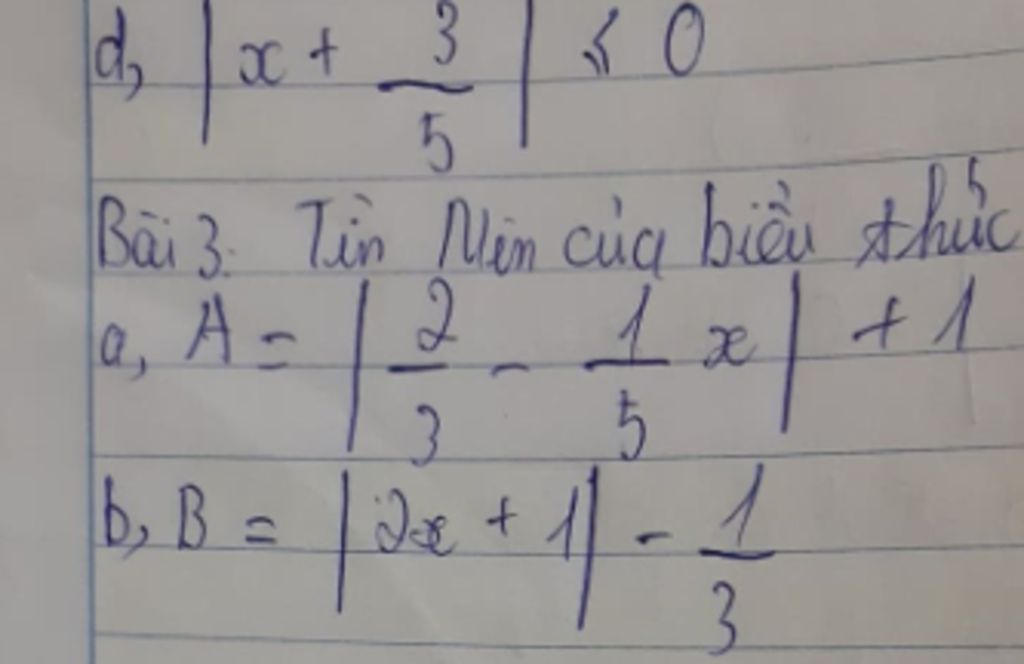 d, |x + 3/5| ≤ 0
Bài 3. Tìn Min của biểu thức
a, A = |2/3 - 1/5 x| + 1
b, B = |2x + 1| - 1/3